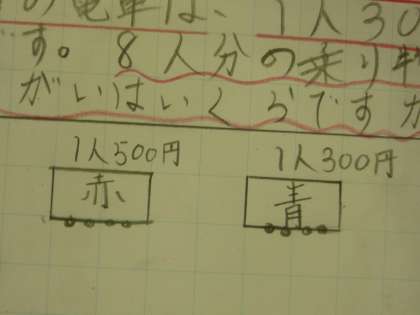 の電車は、1人30
す。8人分の乗り
がいはいくらですか
1人500円 1人300円
赤 青